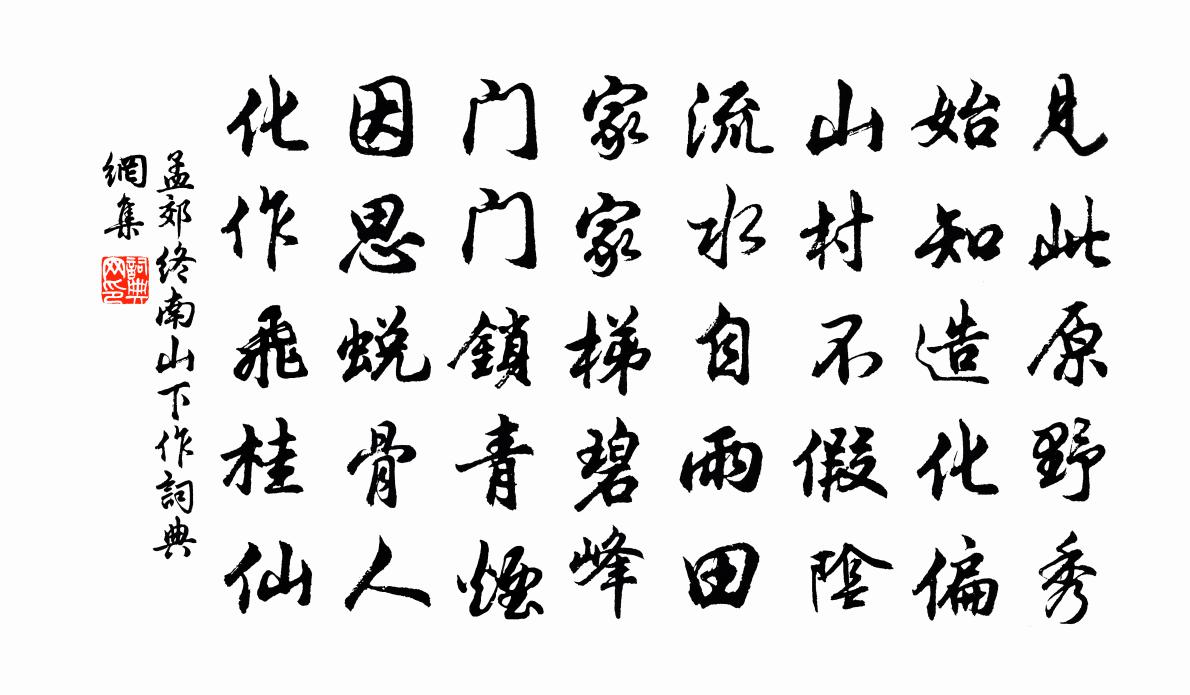 見此原野秀
始知造化偏
山村不假陰
流水自雨田
家家梯碧峰
门门鎖青煙
因思蛻骨人
化作飛桂仙
孟郊終南山下作詞典
網集
詞典網印